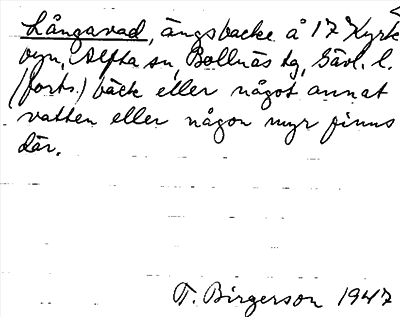 Långavad, ängsbacke å 17 Kyrk
byn, Alfta sn, Bollnäs tg, Gävl. l.
(forts.) bäck eller något annat
vatten eller någon myr finns
där.
T. Birgerson 1947